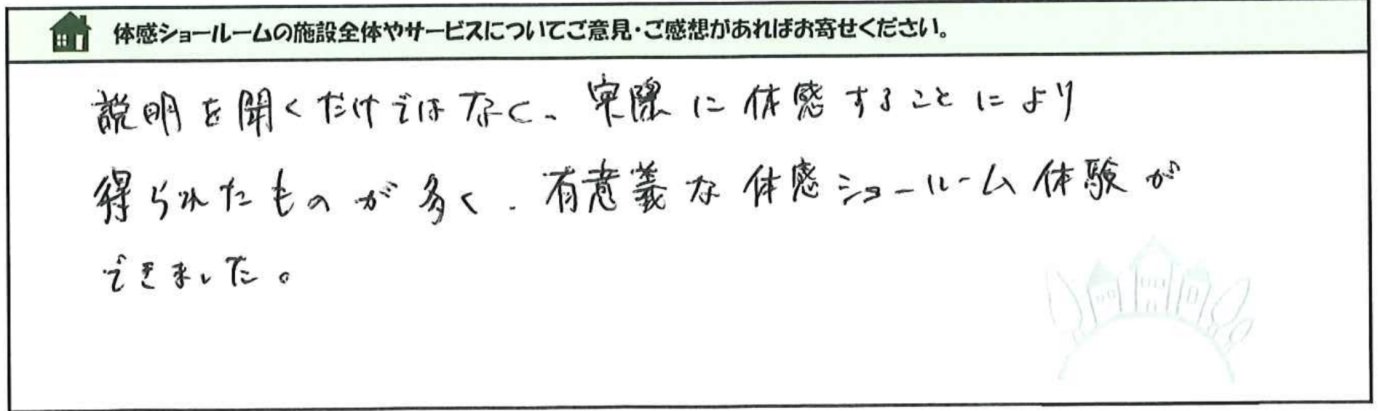 体感ショールームの施設全体やサービスについてご意見・ご感想があればお寄せください。
説明を聞くだけではなく、実際に体感することにより
得られたものが多く、有意義な体感ショールーム体験が
できました。